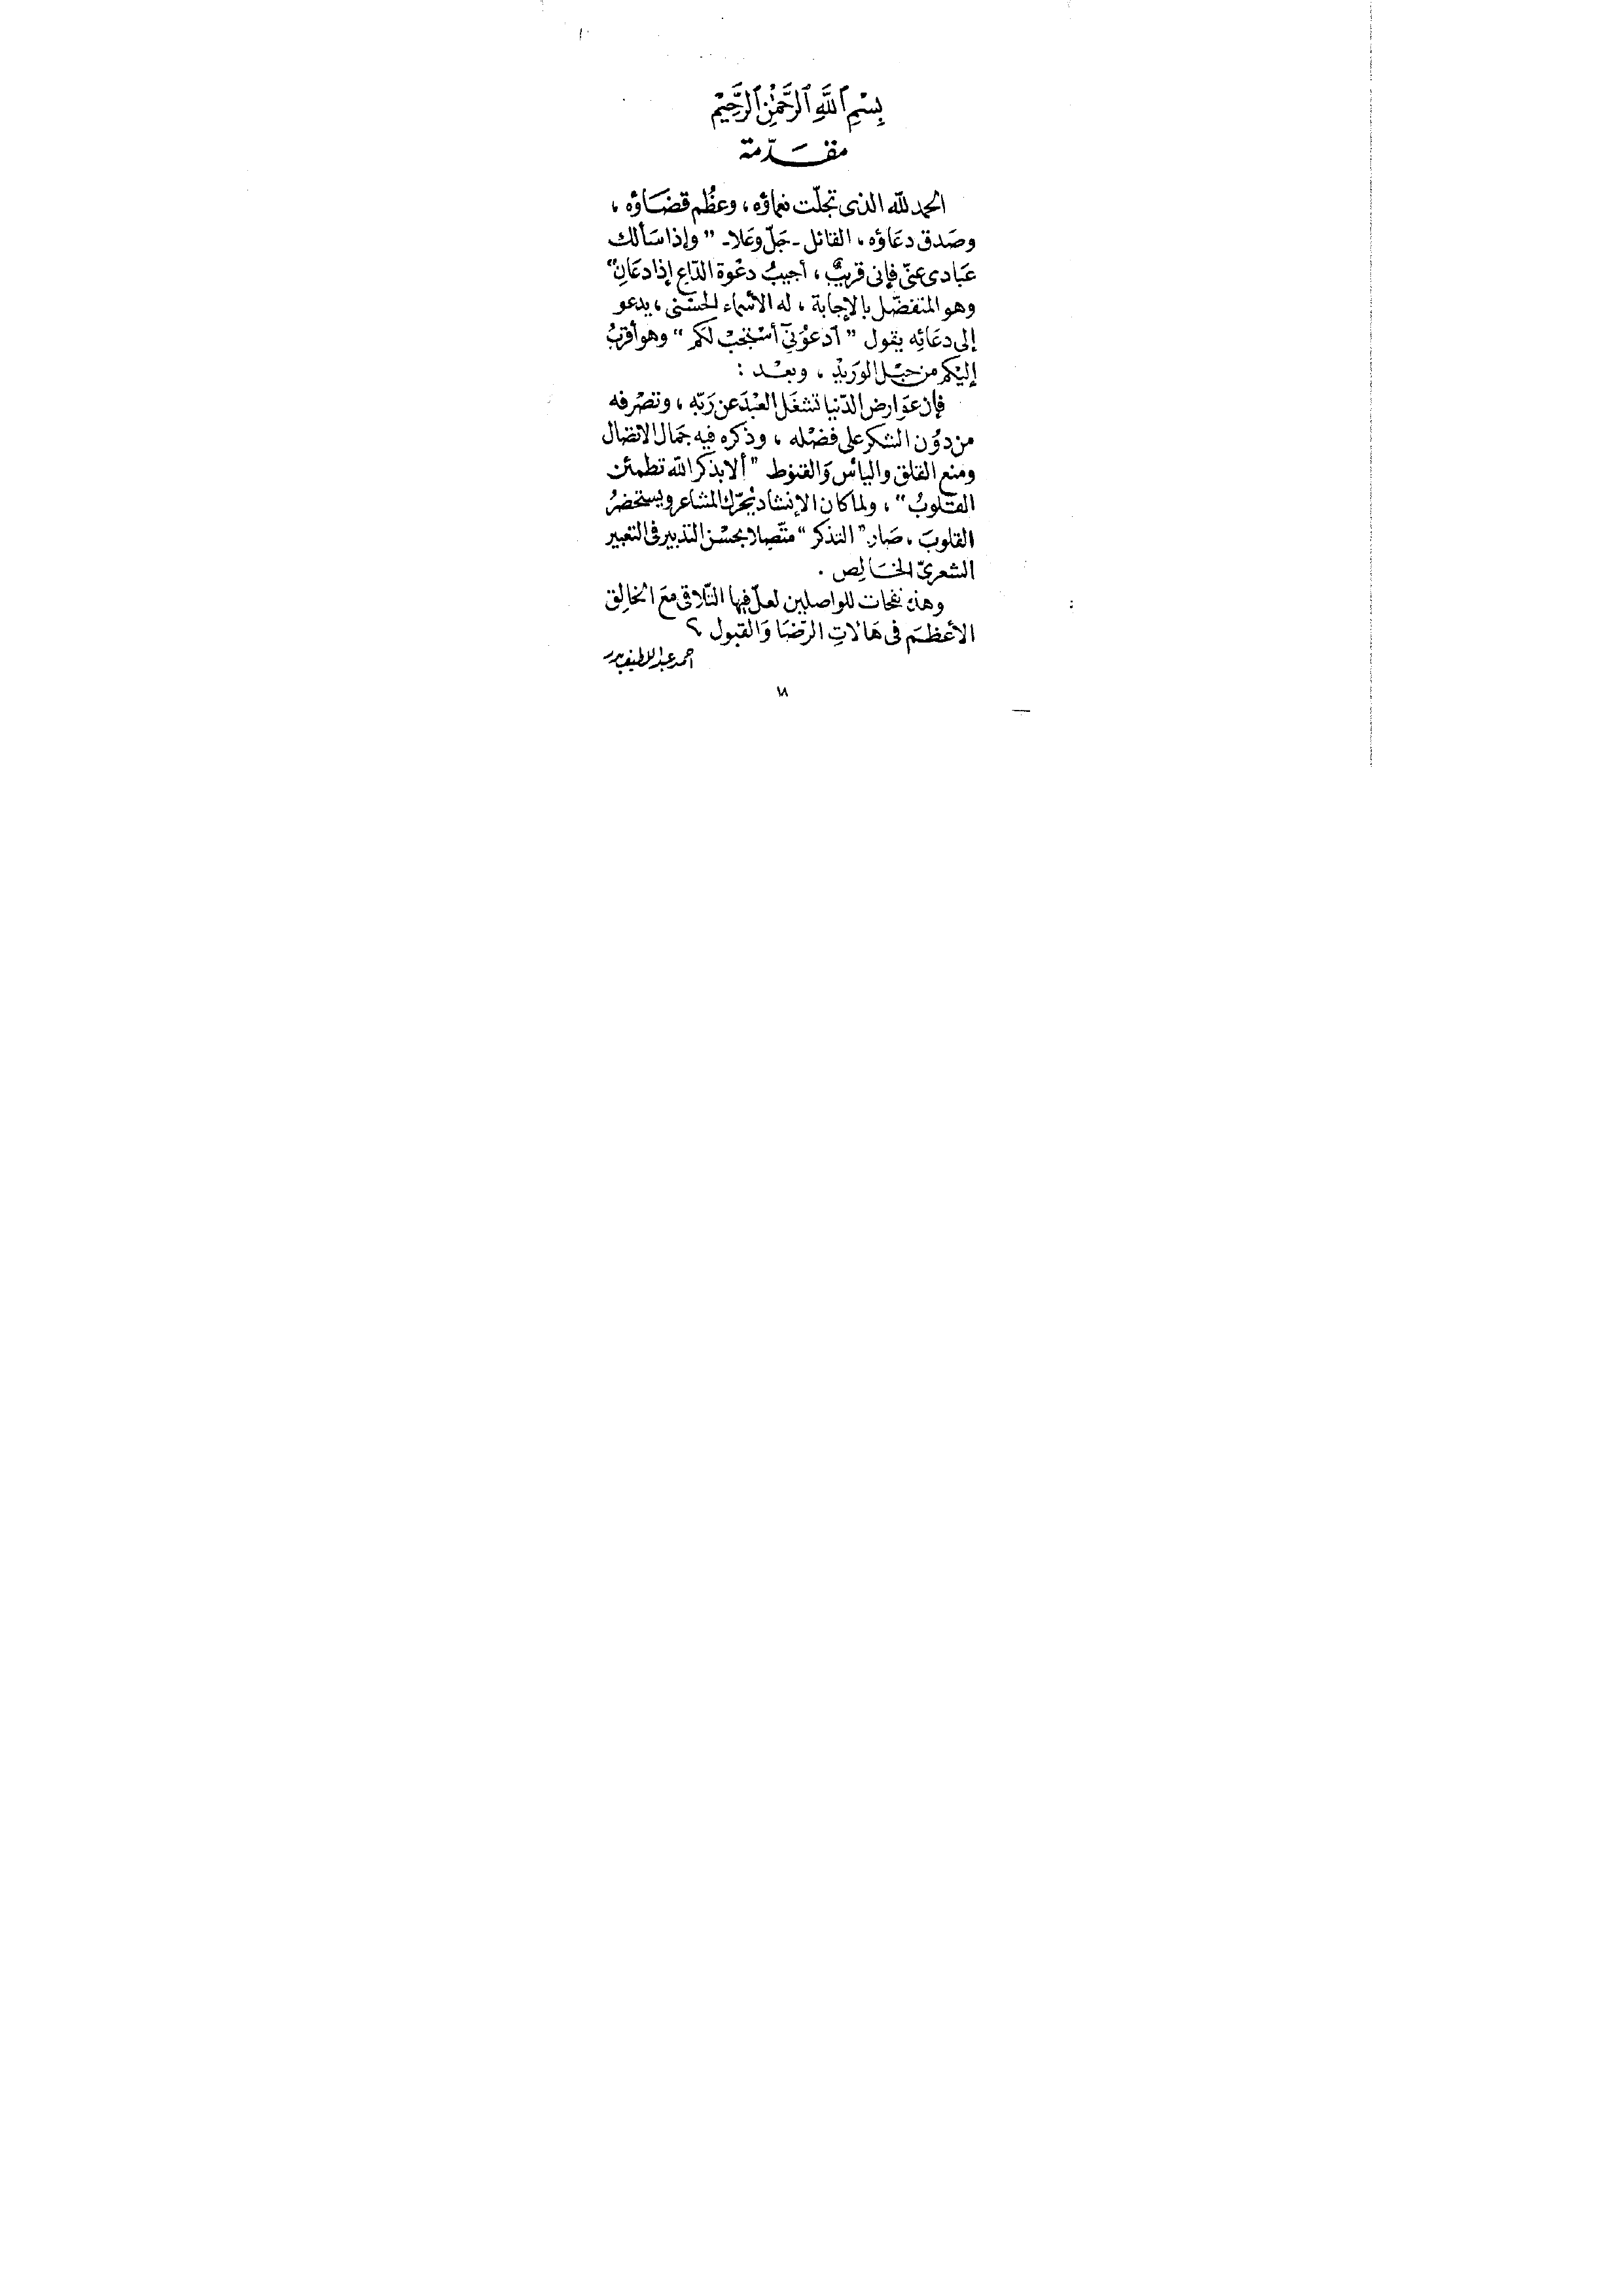 بِسْمِ ٱللَّهِ ٱلرَّحْمَٰنِ ٱلرَّحِيْمِ
مقَـدّمة
الحمد للّه الذى تجلّت نعماؤه، وعظُم قضَاؤه،
وصَدق دعَاؤه، القائل - جَلّ وعَلا - "وإذا سَألك
عبَادى عنّى فإنى قريبٌ، أجيبُ دعْوة الدّاعِ إذا دعَانِ"
وهو المتفضّل بالإجابة، له الأسماء الحسْنى، يدعو
إلى دعَائِه يقول "ادعُوْنِيٓ أسْتجبْ لَكُم" وهو أقربُ
إليْكم من حبْل الورَيدْ، وبعْد :
فإن عوَارض الدّنيا تشغَل العبْدَ عن رَبّه، وتصْرفه
من دوُن الشكر على فضْله، وذكره فيه جَمال الاتصال
ومنع القلق واليأس وَالقنوط "ألا بذكر اللّه تطمئن
القلوبُ"، ولما كان الإنشاد يُحرّك المشاعر ويستحضرُ
القلوبَ، صَار "التذكر" متّصلا بحسْن التدبير فى التعبير
الشعرىّ الخَالِص .
وهذه نفحات للواصلين لعلّ فيها التّلاقى مَع الخالِق
الأعظَم فى هَالاتِ الرّضَا وَالقبول
أحمد عبد اللطيف بدر
١٨